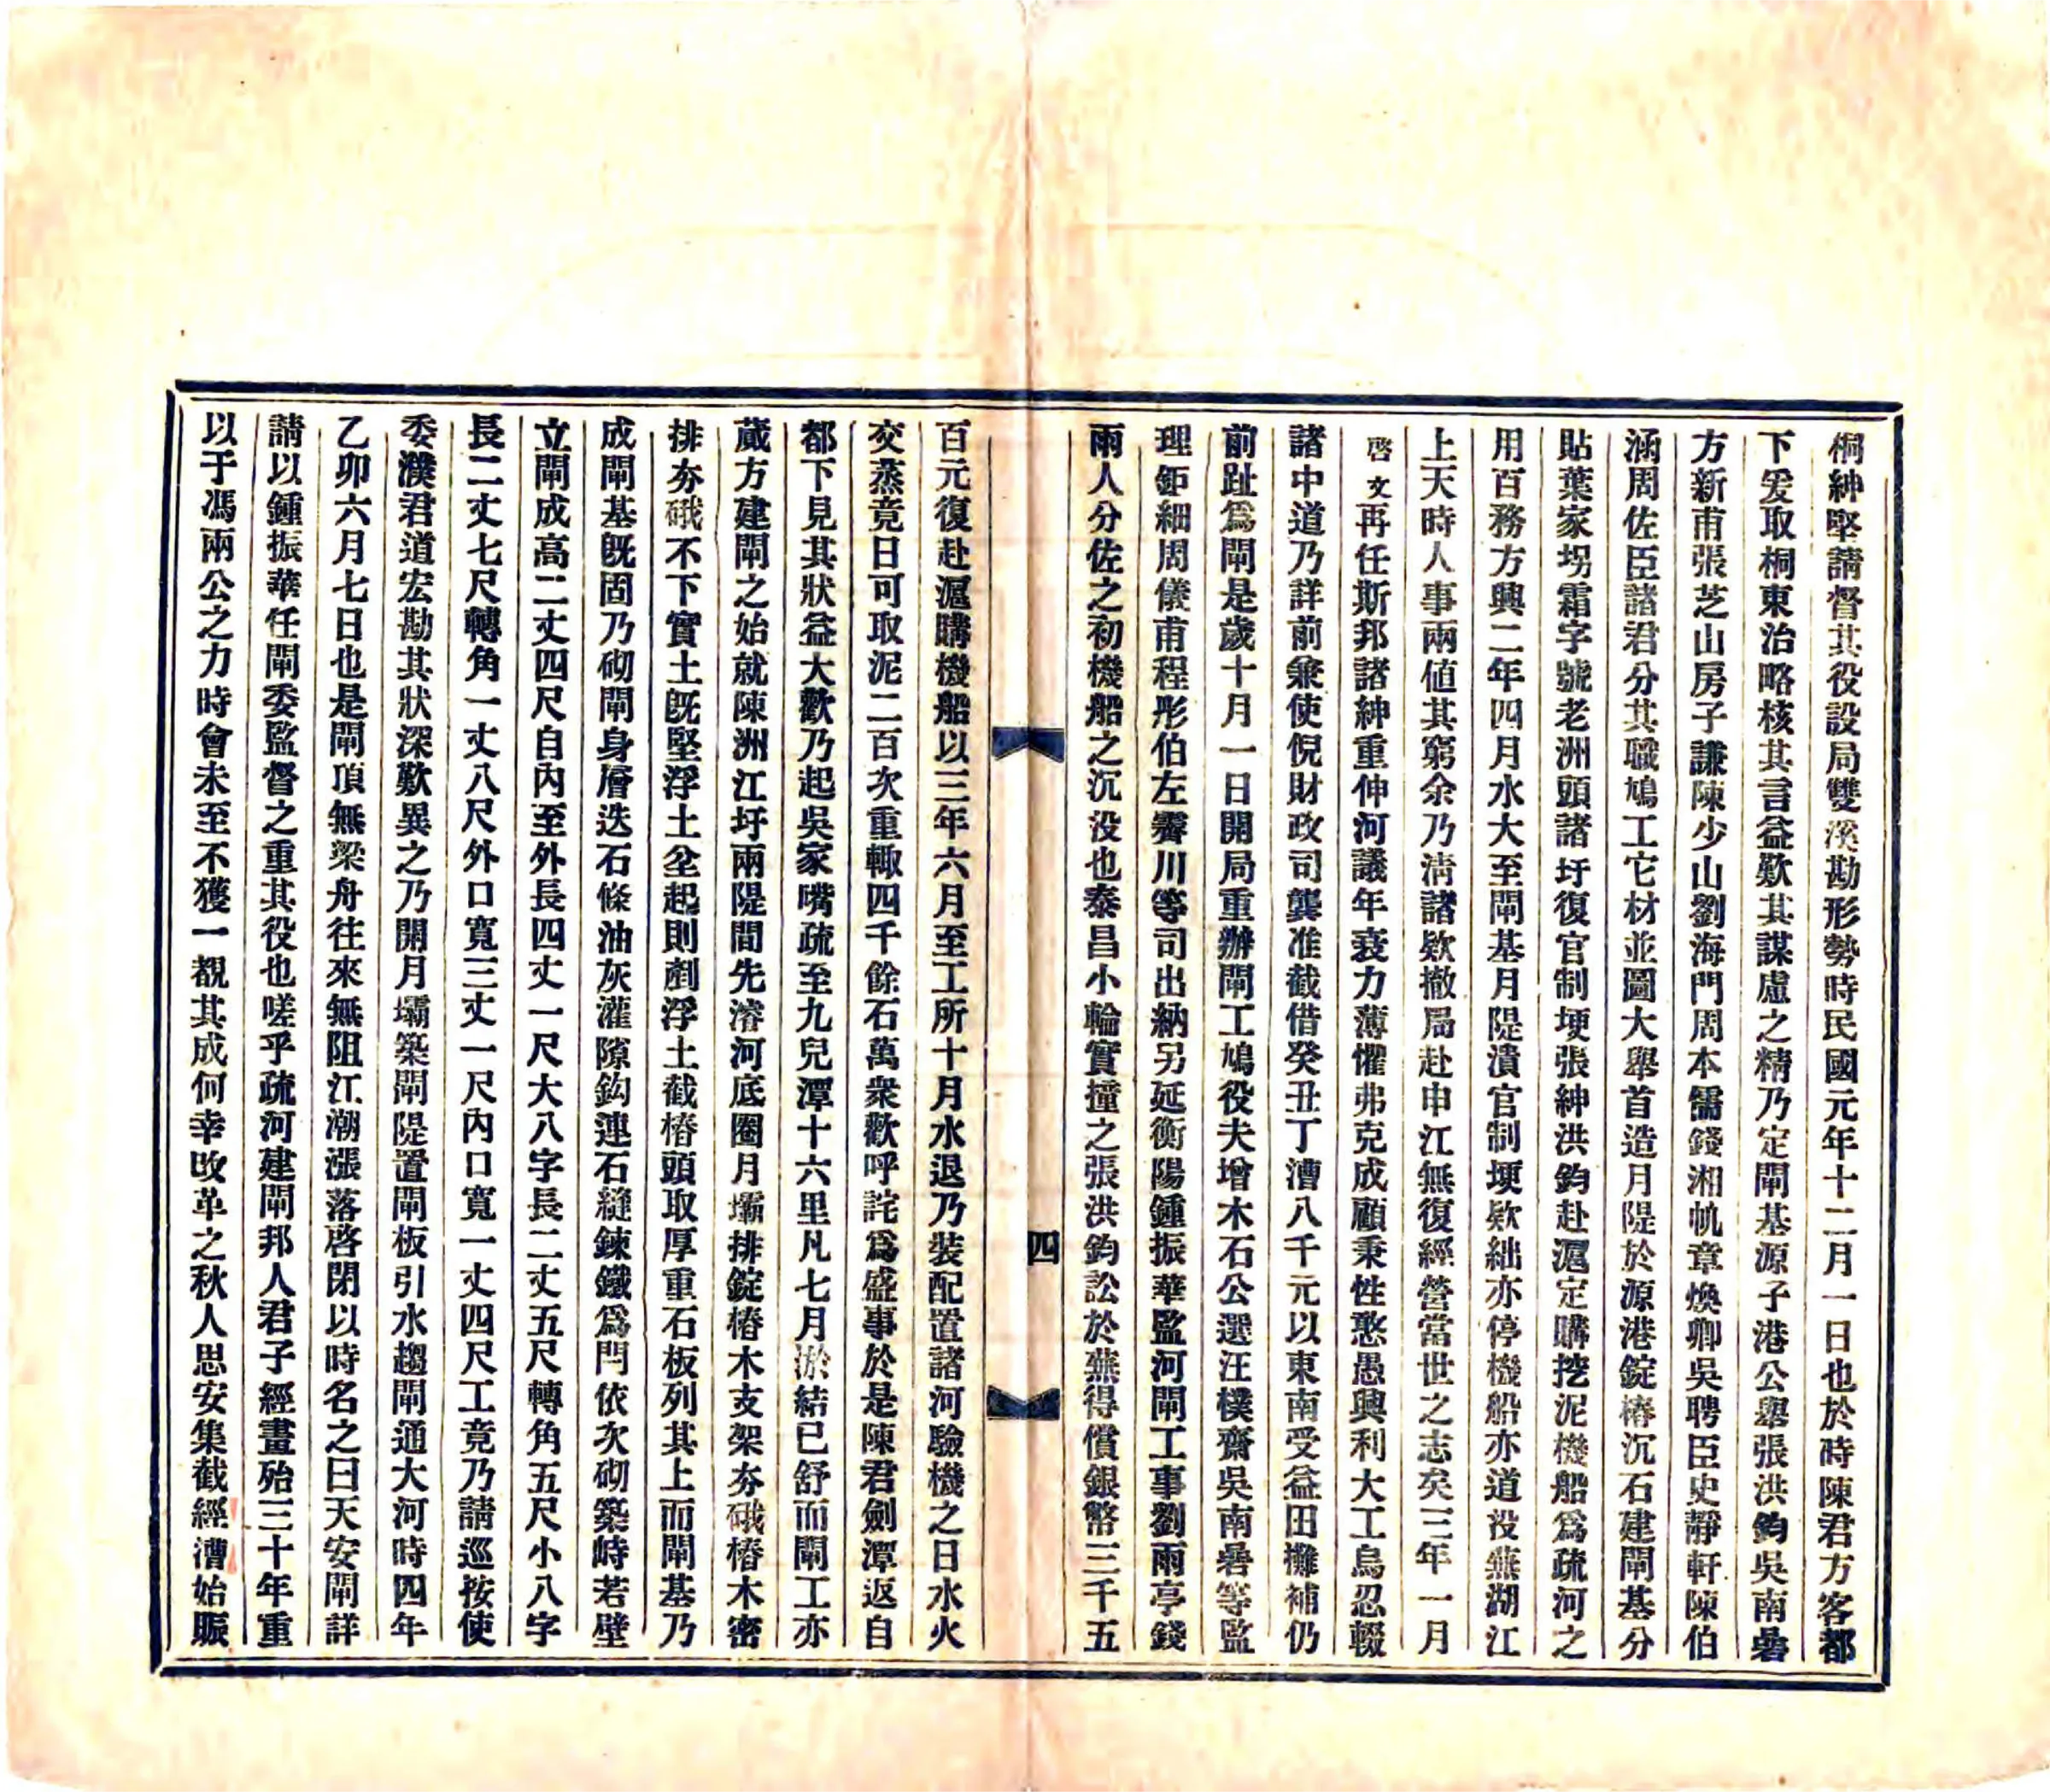 桐紳堅請督其役設局雙溪勘形勢時民國元年十二月一日也於時陳君方客都
下爰取桐東治略核其言益歎其謀慮之精乃定閘基源子港公舉張洪鈞吳南暑
方新甫張芝山房子謙陳少山劉海門周本儒錢湘帆章煥卿吳聘臣史靜軒陳伯
涵周佐臣諸君分其職鳩工它材並圖大舉首造月隄於源港錠樁沉石建閘基分
貼葉家拐霜字號老洲頭諸圩復官制埂張紳洪鈞赴滬定購挖泥機船爲疏河之
用百務方興二年四月水大至閘基月隄潰官制埂欵絀亦停機船亦道投蕪湖江
上天時人事兩値其窮余乃淸諸欵撤局赴申江無復經營當世之志矣三年一月
啓文再任斯邦諸紳重伸河議年衰力薄懼弗克成顧秉性憨愚興利大工烏忍輟
諸中道乃詳前兼使倪財政司龔准截借癸丑丁漕八千元以東南受益田攤補仍
前趾爲閘是歲十月一日開局重辦閘工鳩役夫增木石公選汪樸齋吳南暑等監
理鉅細周儀甫程彤伯左霽川等司出納另延衡陽鍾振華監河閘工事劉雨亭錢
兩人分佐之初機船之沉没也泰昌小輪實撞之張洪鈞訟於蕪得償銀幣三千五
四
百元復赴滬購機船以三年六月至工所十月水退乃裝配置諸河驗機之日水火
交蒸竟日可取泥二百次重輙四千餘石萬衆歡呼詫爲盛事於是陳君劍潭返自
都下見其狀益大歡乃起吳家嘴疏至九兒潭十六里凡七月淤結已舒而閘工亦
蕆方建閘之始就陳洲江圩兩隄間先濬河底圈月壩排錠樁木支架夯硪樁木密
排夯硪不下實土旣堅浮土坌起則剷浮土截樁頭取厚重石板列其上而閘基乃
成閘基旣固乃砌閘身層迭石條油灰灌隙鈎連石縫鍊鐵爲閂依次砌築峙若壁
立閘成高二丈四尺自內至外長四丈一尺大八字長二丈五尺轉角五尺小八字
長二丈七尺轉角一丈八尺外口寬三丈一尺內口寬一丈四尺工竟乃請巡按使
委濮君道宏勘其狀深歎異之乃開月壩築閘隄置閘板引水趨閘通大河時四年
乙卯六月七日也是閘頂無梁舟往來無阻江潮漲落啓閉以時名之曰天安閘詳
請以鍾振華任閘委監督之重其役也嗟乎疏河建閘邦人君子經畫殆三十年重
以于馮兩公之力時會未至不獲一覩其成何幸攺革之秋人思安集截經漕始賑